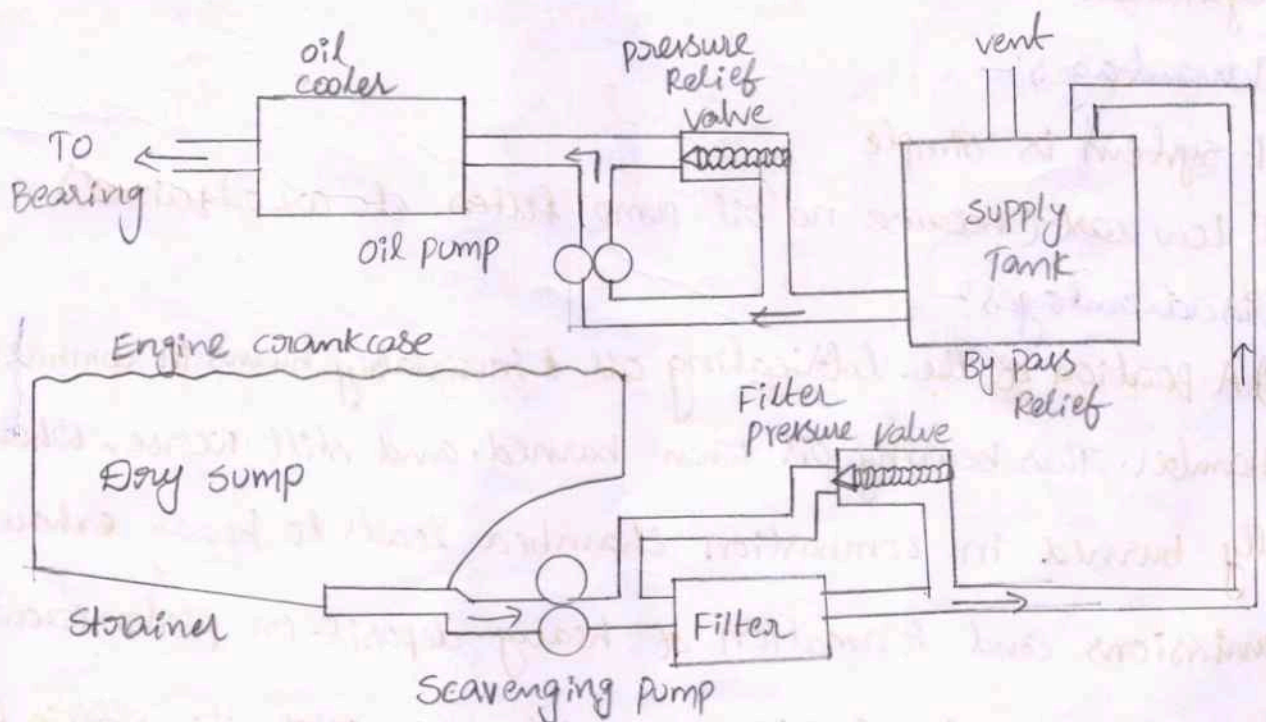 oil
cooler
pressure
Relief
valve
vent
TO
Bearing
oil pump
Supply
Tank
Engine crankcase
By pass
Relief
Filter
pressure valve
Dry sump
Strainer
Filter
Scavenging pump